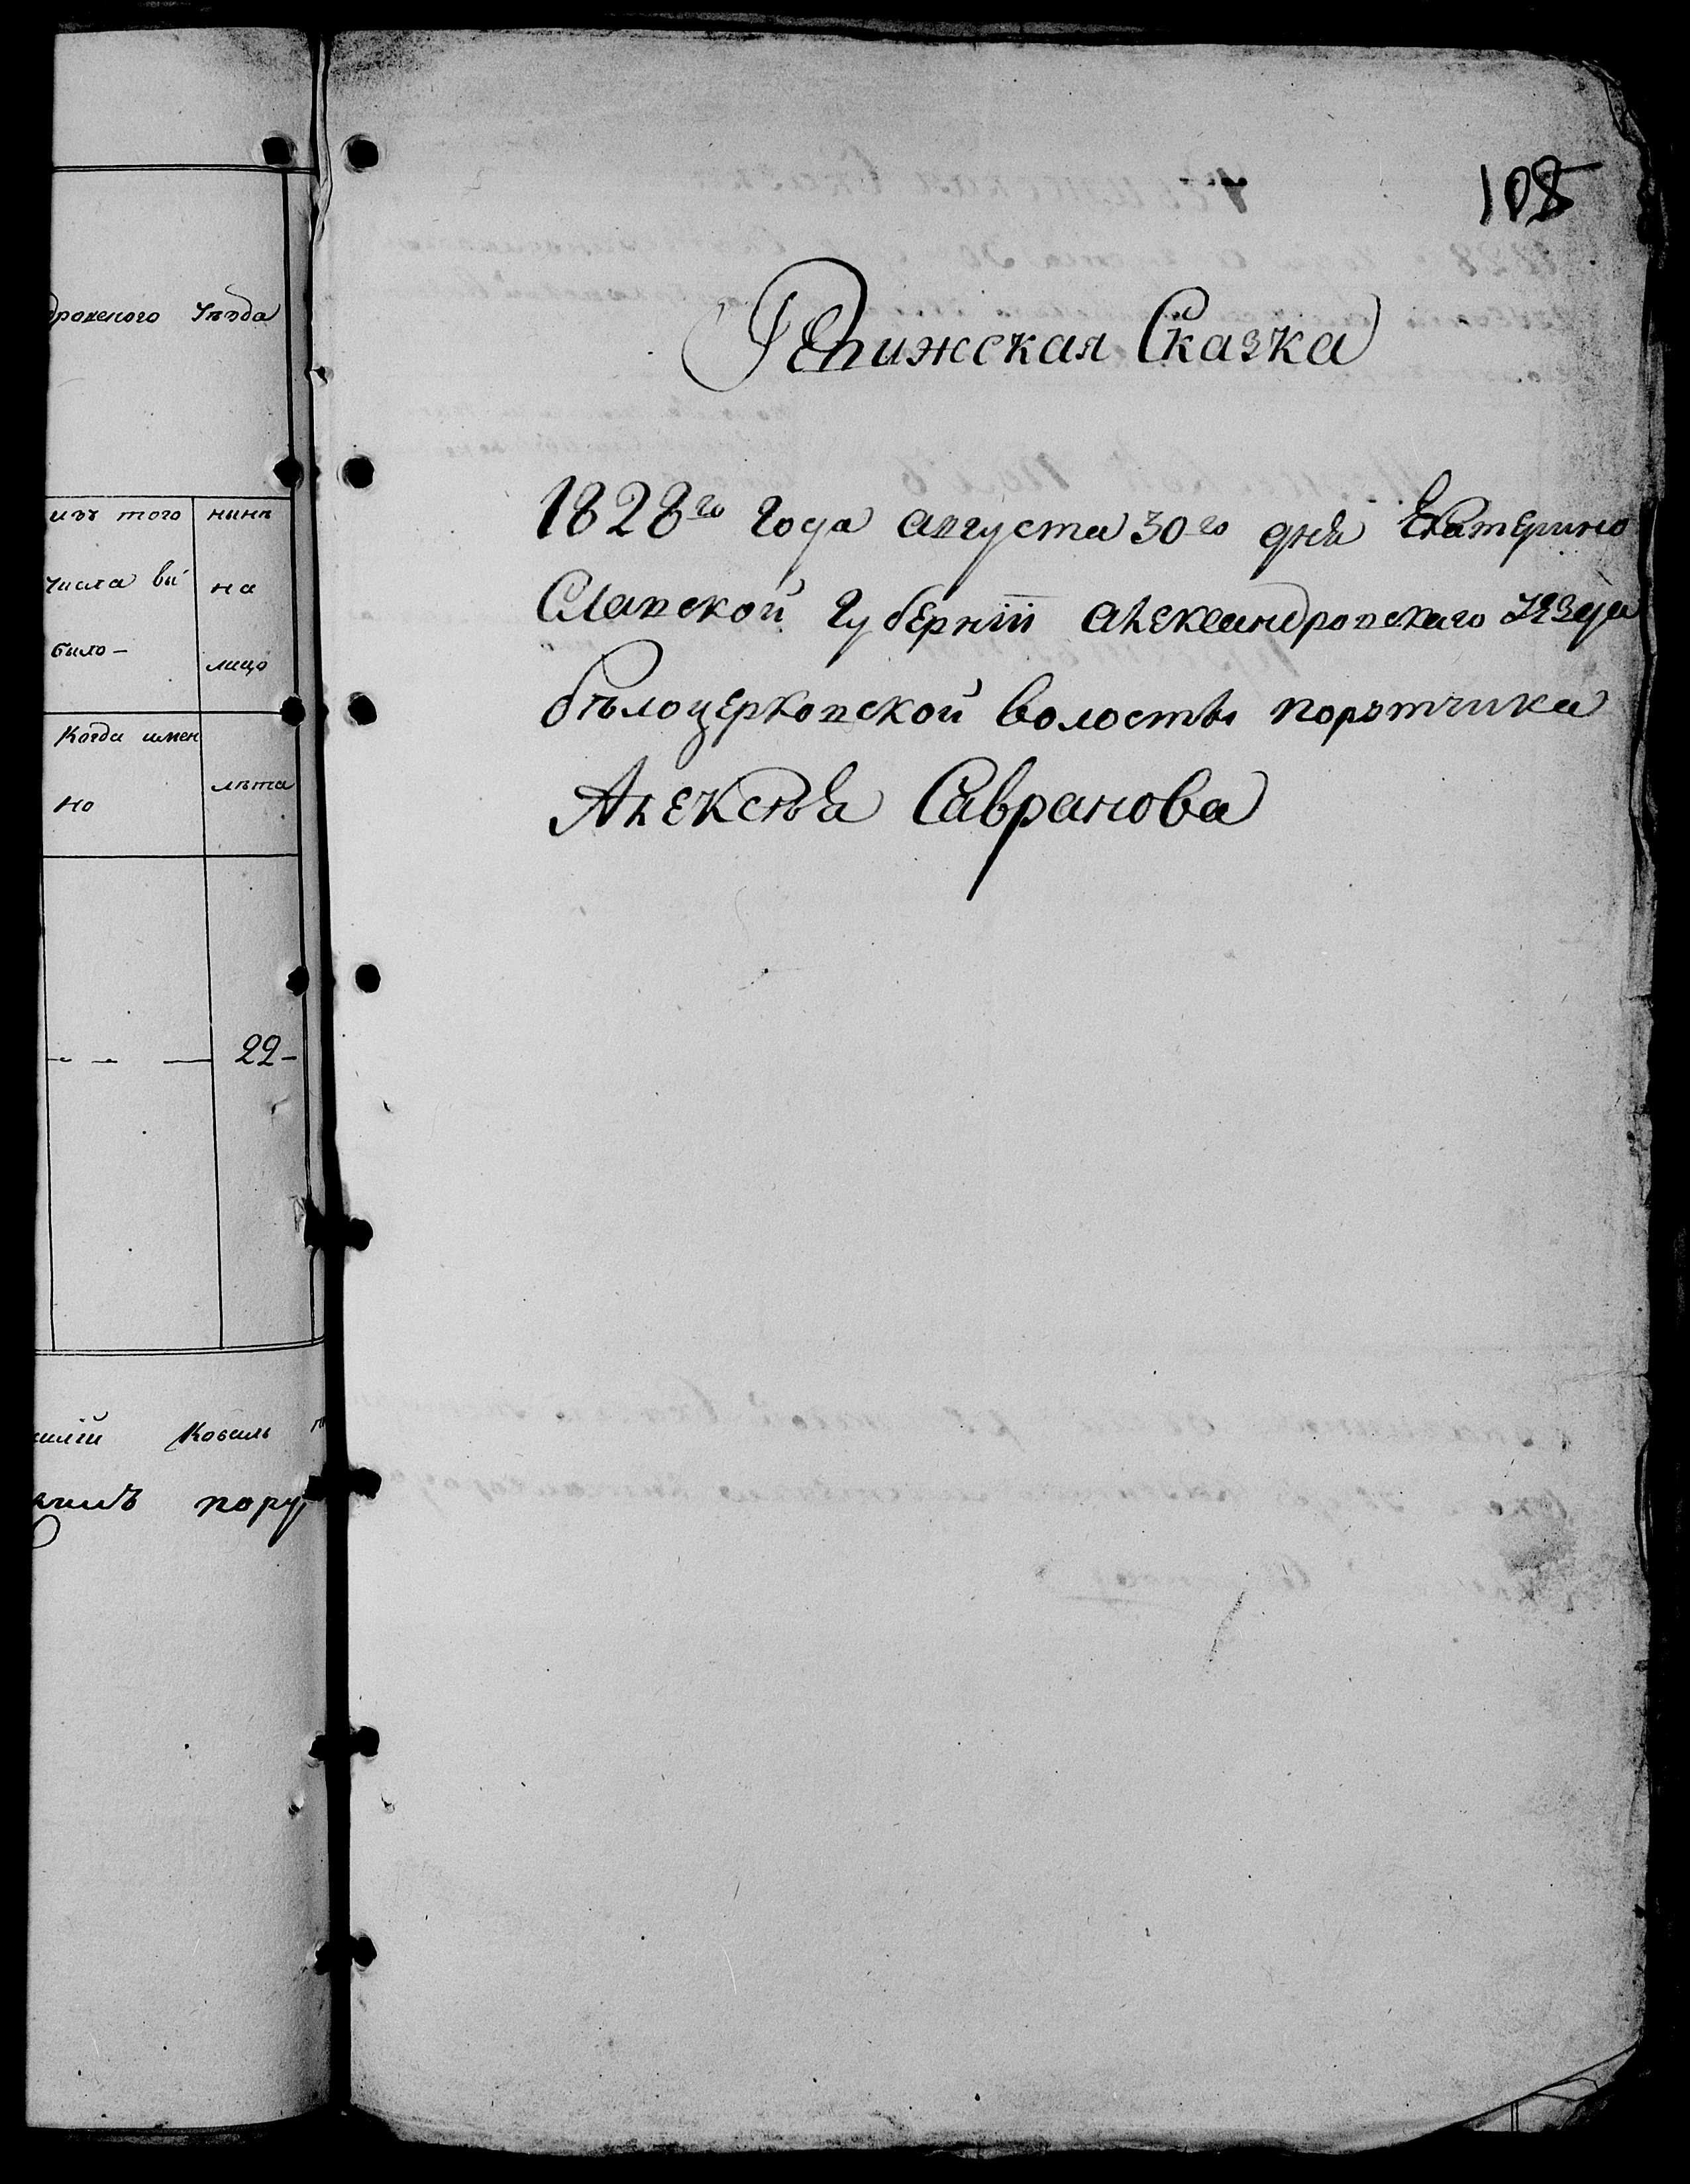 дровского Уѣзда
изъ того нынѣ
числа вы на
было- лицо
Когда имен
но лѣта
22-
Коваль
пору
108
Ревижская Сказка
1828го Года августа 30го дня Екатерино
Славской Губерніи александровскаго уезда
бѣлоцерковской волосты порутчика
Алексѣя Савранова